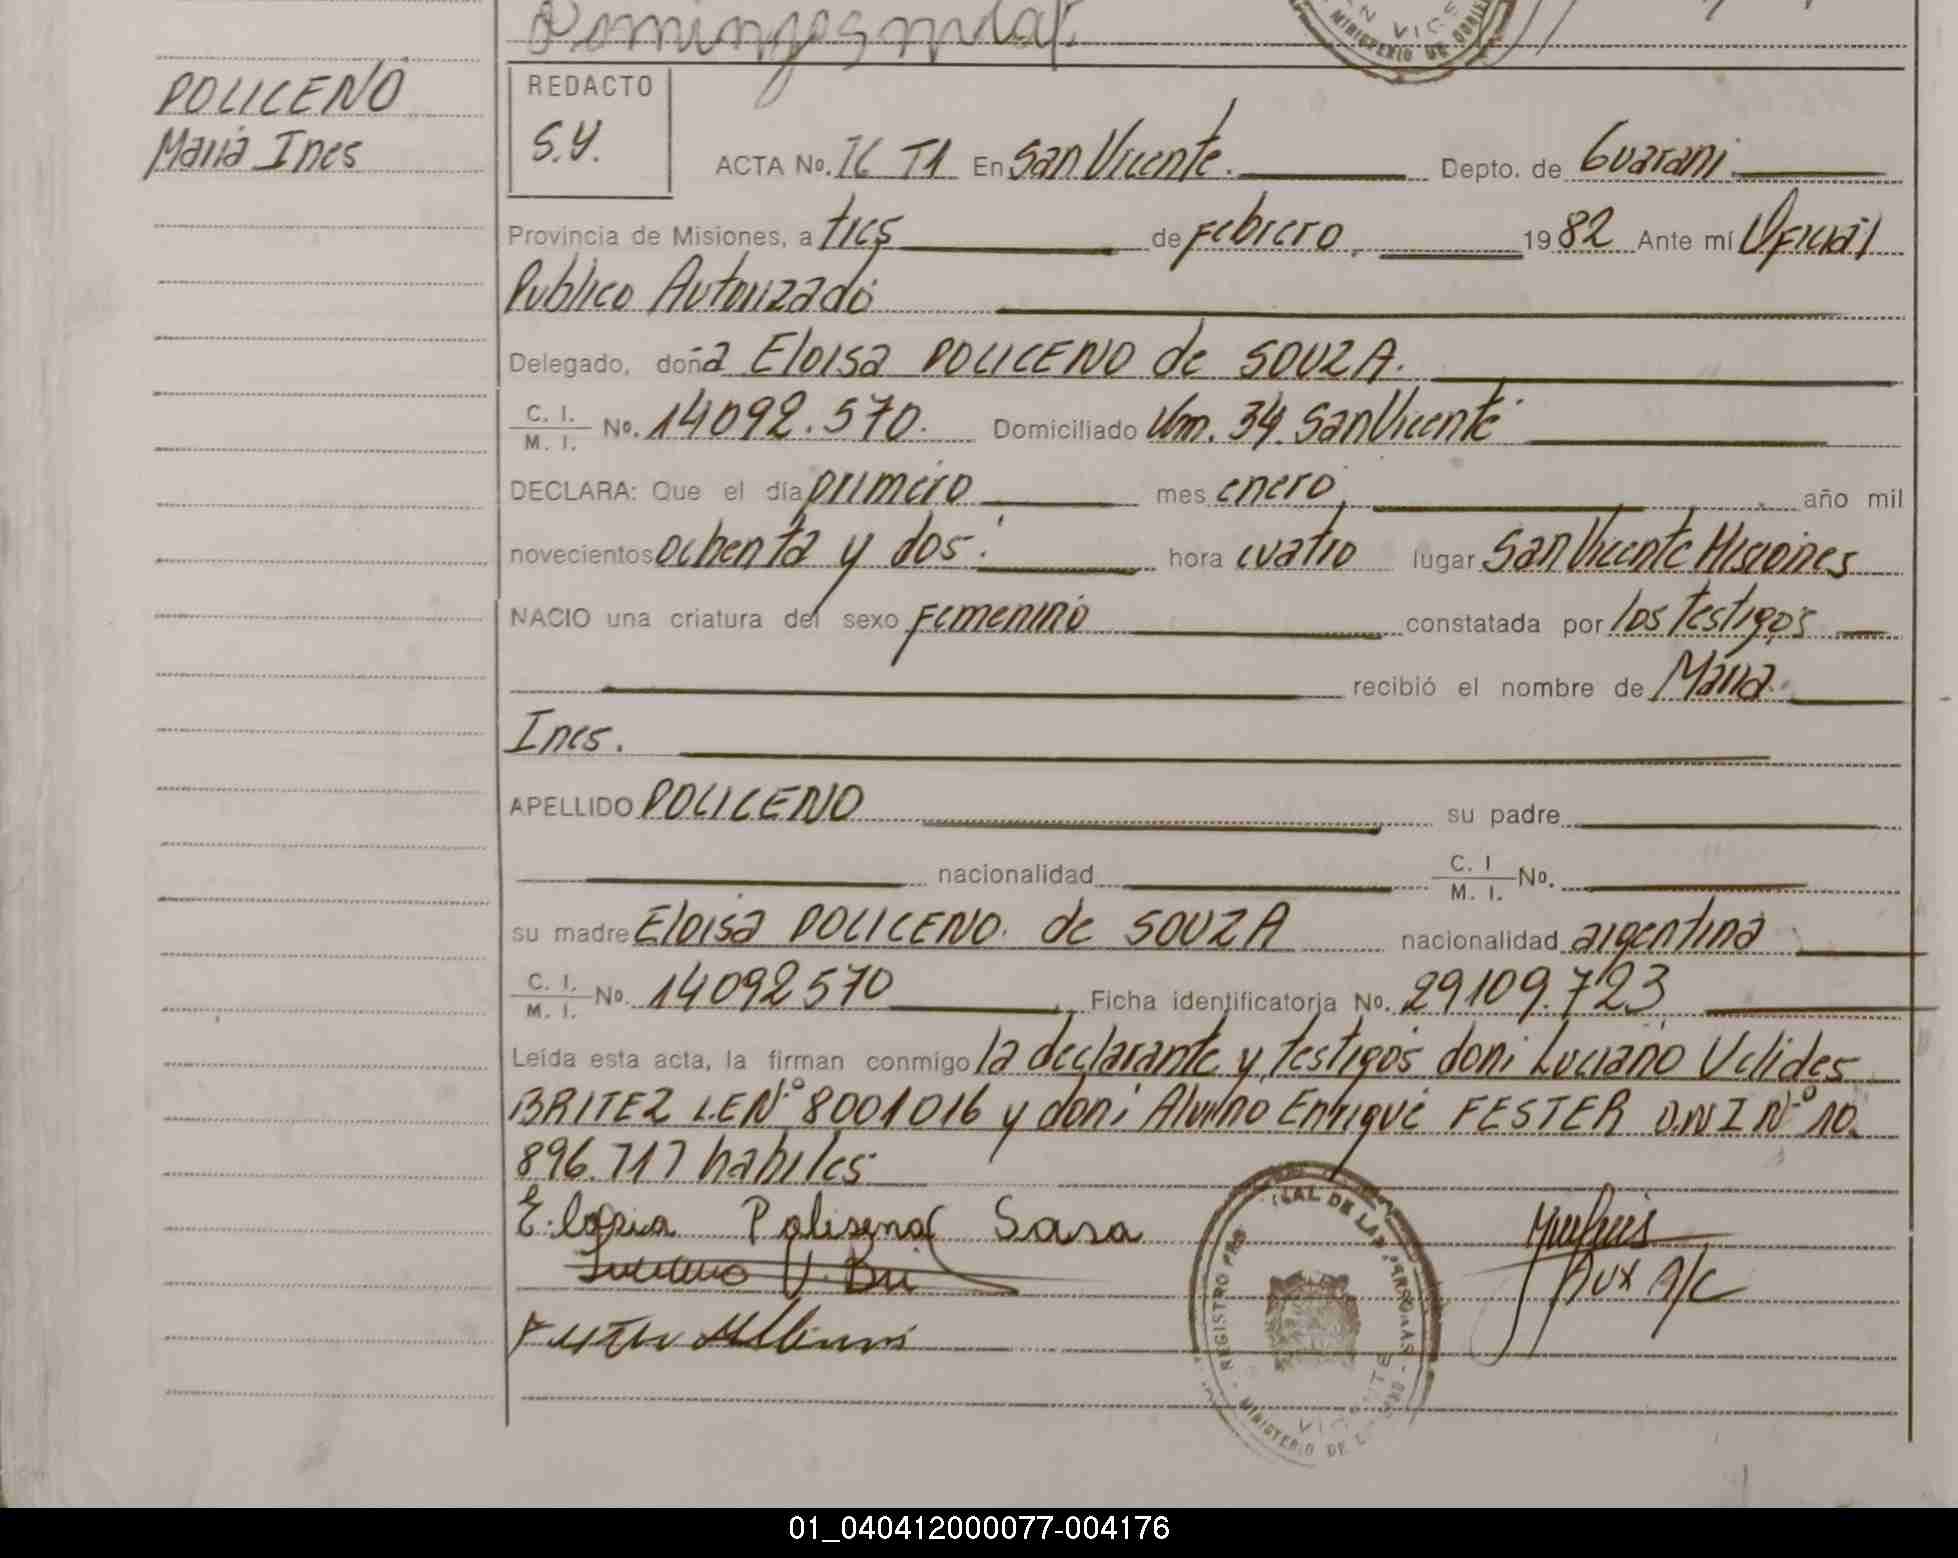 POLICENO
Maria Ines
REDACTO
S.Y.
ACTA No. 76 T1 En San Vicente. Depto. de Guarani
Provincia de Misiones, a tres de Febrero, 1982 Ante mí Oficial
Publico Autorizado
Delegado, doña Eloisa POLICENO de SOUZA.
C. I. / M. I. No. 14092.570. Domiciliado Km. 34 San Vicente
DECLARA: Que el día primero mes enero, año mil
novecientos ochenta y dos. hora cuatro lugar San Vicente Misiones
NACIO una criatura del sexo Femenino constatada por los testigos
recibió el nombre de Maria
Ines.
APELLIDO POLICENO su padre
nacionalidad C. I / M. I. No.
su madre Eloisa POLICENO. de SOUZA nacionalidad argentina
C. I. / M. I. No. 14092570 Ficha identificatoria No. 29109.723
Leída esta acta, la firman conmigo la declarante y testigos don: Luciano Uclides
BRITEZ L.E Nº 8001016 y don: Alvino Enrique FESTER D.N I Nº 10.
896.717 habiles
REGISTRO DE LAS PERSONAS
MINISTERIO DE
Aux A/C
01_040412000077-004176